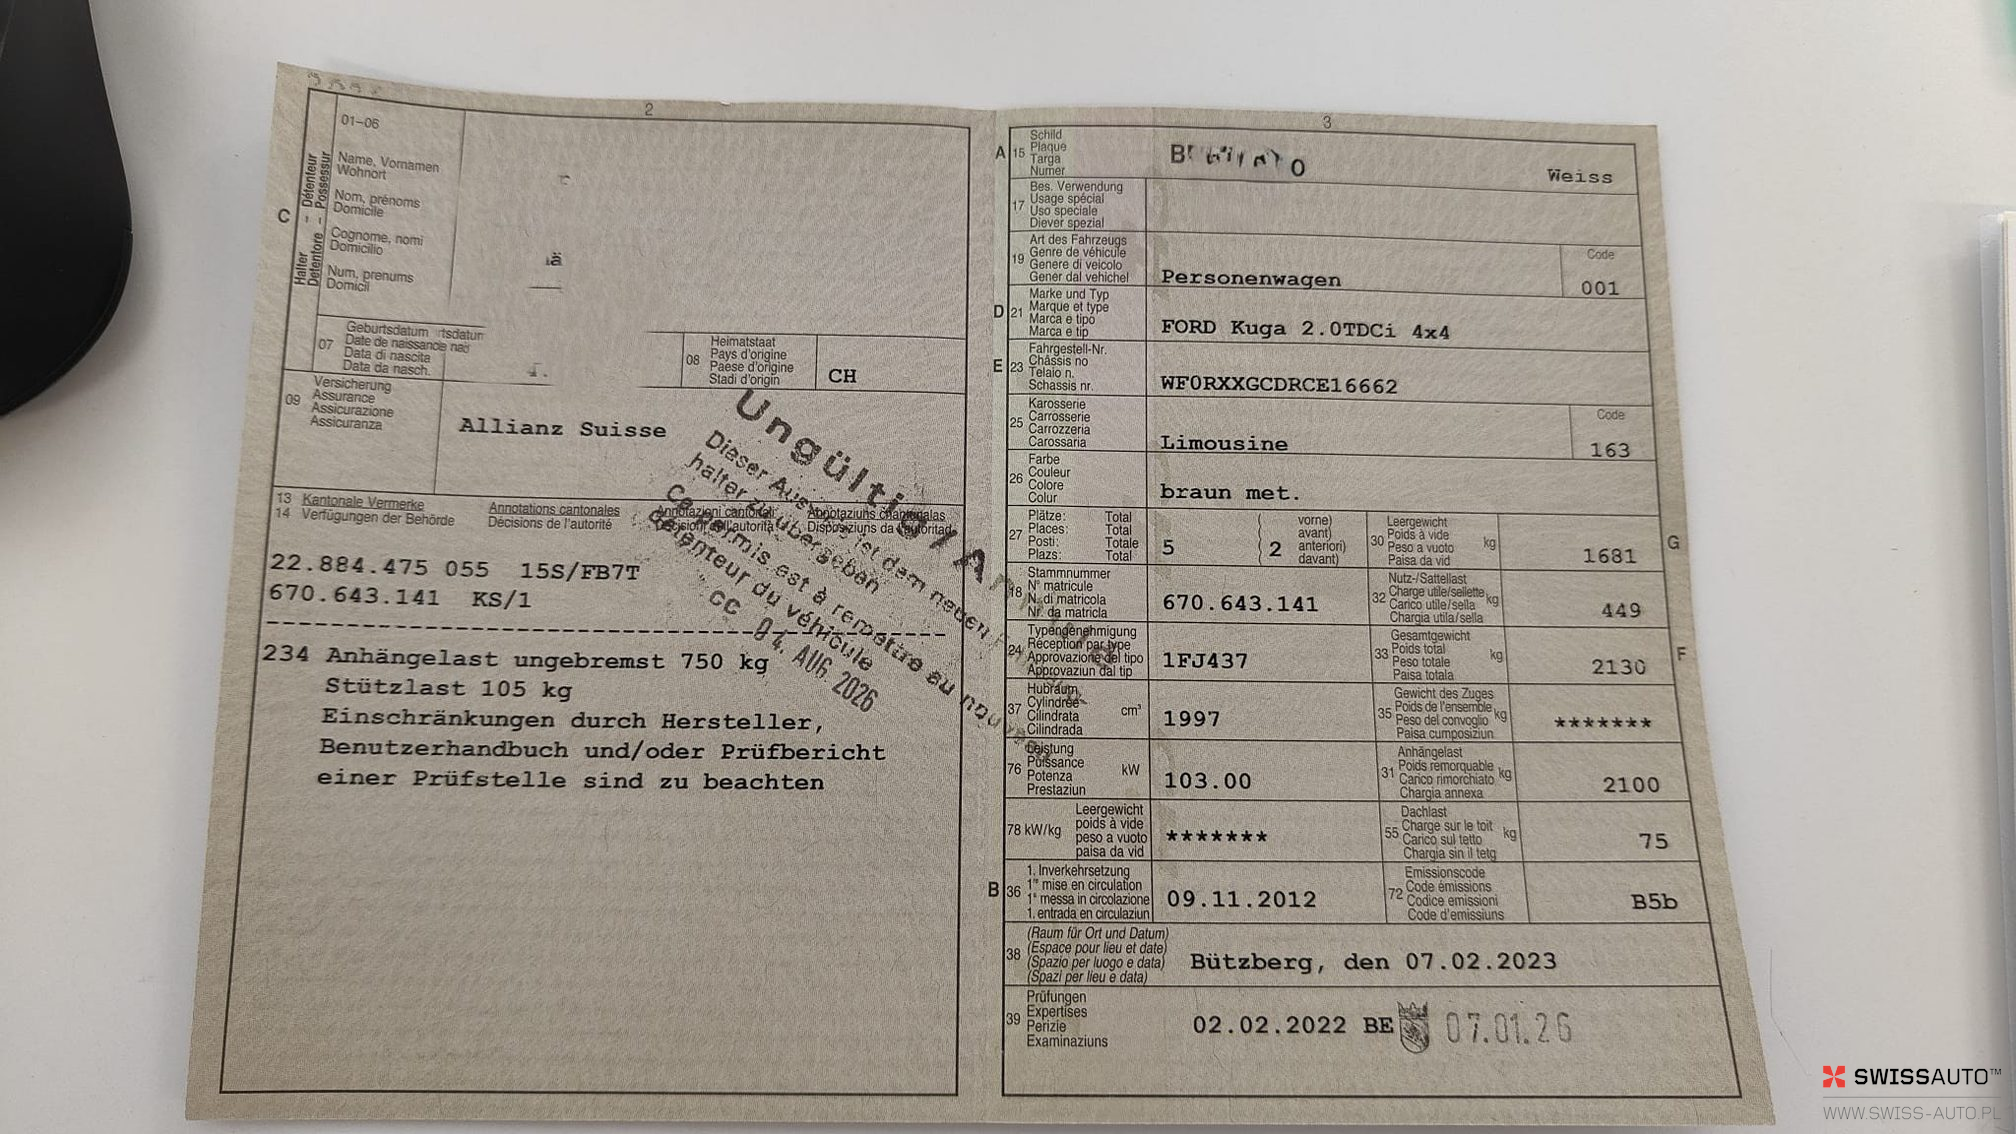 2
01–06
Name, Vornamen
Wohnort
Nom, prénoms
Domicile
Cognome, nomi
Domicilio
Num, prenums
Domicil
C
Halter – Détenteur
Detentore – Possessur
07
Geburtsdatum
Date de naissance
Data di nascita
Data da nasch.
08
Heimatstaat
Pays d'origine
Paese d'origine
Stadi d'origin
CH
09
Versicherung
Assurance
Assicurazione
Assicuranza
Allianz Suisse
13 Kantonale Vermerke Annotations cantonales Annotazioni cantonali Annotaziuns chantunalas
14 Verfügungen der Behörde Décisions de l'autorité Decisioni dell'autorità Disposiziuns da l'autoritad
Ungültig / An
Dieser Ausweis ist dem neuen
halter zu übergeben
Ce permis est à remettre au nouveau
détenteur du véhicule
CC 04. AUG. 2026
22.884.475 055 15S/FB7T
670.643.141 KS/1
234 Anhängelast ungebremst 750 kg
Stützlast 105 kg
Einschränkungen durch Hersteller,
Benutzerhandbuch und/oder Prüfbericht
einer Prüfstelle sind zu beachten
3
A 15
Schild
Plaque
Targa
Numer
Weiss
17
Bes. Verwendung
Usage spécial
Uso speciale
Diever spezial
19
Art des Fahrzeugs
Genre de véhicule
Genere di veicolo
Gener dal vehichel
Personenwagen
Code
001
D 21
Marke und Typ
Marque et type
Marca e tipo
Marca e tip
FORD Kuga 2.0TDCi 4x4
E 23
Fahrgestell-Nr.
Châssis no
Telaio n.
Schassis nr.
WF0RXXGCDRCE16662
25
Karosserie
Carrosserie
Carrozzeria
Carossaria
Limousine
Code
163
26
Farbe
Couleur
Colore
Colur
braun met.
27
Plätze: Total
Places: Total
Posti: Totale
Plazs: Total
5
2
vorne)
avant)
anteriori)
davant)
30
Leergewicht
Poids à vide
Peso a vuoto
Paisa da vid
kg
1681
G
18
Stammnummer
N° matricule
N. di matricola
Nr. da matricla
670.643.141
32
Nutz-/Sattellast
Charge utile/sellette
Carico utile/sella
Chargia utila/sella
kg
449
24
Typengenehmigung
Réception par type
Approvazione del tipo
Approvaziun dal tip
1FJ437
33
Gesamtgewicht
Poids total
Peso totale
Paisa totala
kg
2130
F
37
Hubraum
Cylindrée
Cilindrata
Cilindrada
cm³
1997
35
Gewicht des Zuges
Poids de l'ensemble
Peso del convoglio
Paisa cumposiziun
kg
*******
76
Leistung
Puissance
Potenza
Prestaziun
kW
103.00
31
Anhängelast
Poids remorquable
Carico rimorchiato
Chargia annexa
kg
2100
78 kW/kg
Leergewicht
poids à vide
peso a vuoto
paisa da vid
*******
55
Dachlast
Charge sur le toit
Carico sul tetto
Chargia sin il tetg
kg
75
B 36
1. Inverkehrsetzung
1re mise en circulation
1a messa in circolazione
1. entrada en circulaziun
09.11.2012
72
Emissionscode
Code émissions
Codice emissioni
Code d'emissiuns
B5b
38
(Raum für Ort und Datum)
(Espace pour lieu et date)
(Spazio per luogo e data)
(Spazi per lieu e data)
Bützberg, den 07.02.2023
39
Prüfungen
Expertises
Perizie
Examinaziuns
02.02.2022 BE 07.01.26
SWISSAUTO™
WWW.SWISS-AUTO.PL